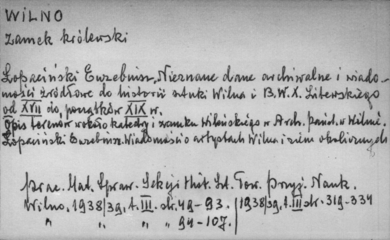 WILNO
Zamek królewski
Łopaciński Euzebiusz, Nieznane dane archiwalne i wiado-
mości źródłowe do historii sztuki Wilna i B.W.X. Litewskiego
od XVII do początków XIX w.
Opis terenów wokoło katedry i zamku Wileńskiego w Arch. państ. w Wilnie.
Łopaciński Euzebiusz. Wiadomości o artystach Wilna i ziem okolicznych
Prac. Mat. Spraw. Sekcji Hist. Szt. Tow. Przyj. Nauk.
Wilno, 1938/39, t. III. str. 49-93. (1938/39, t. III str. 319-334
" " " " 94-107.)